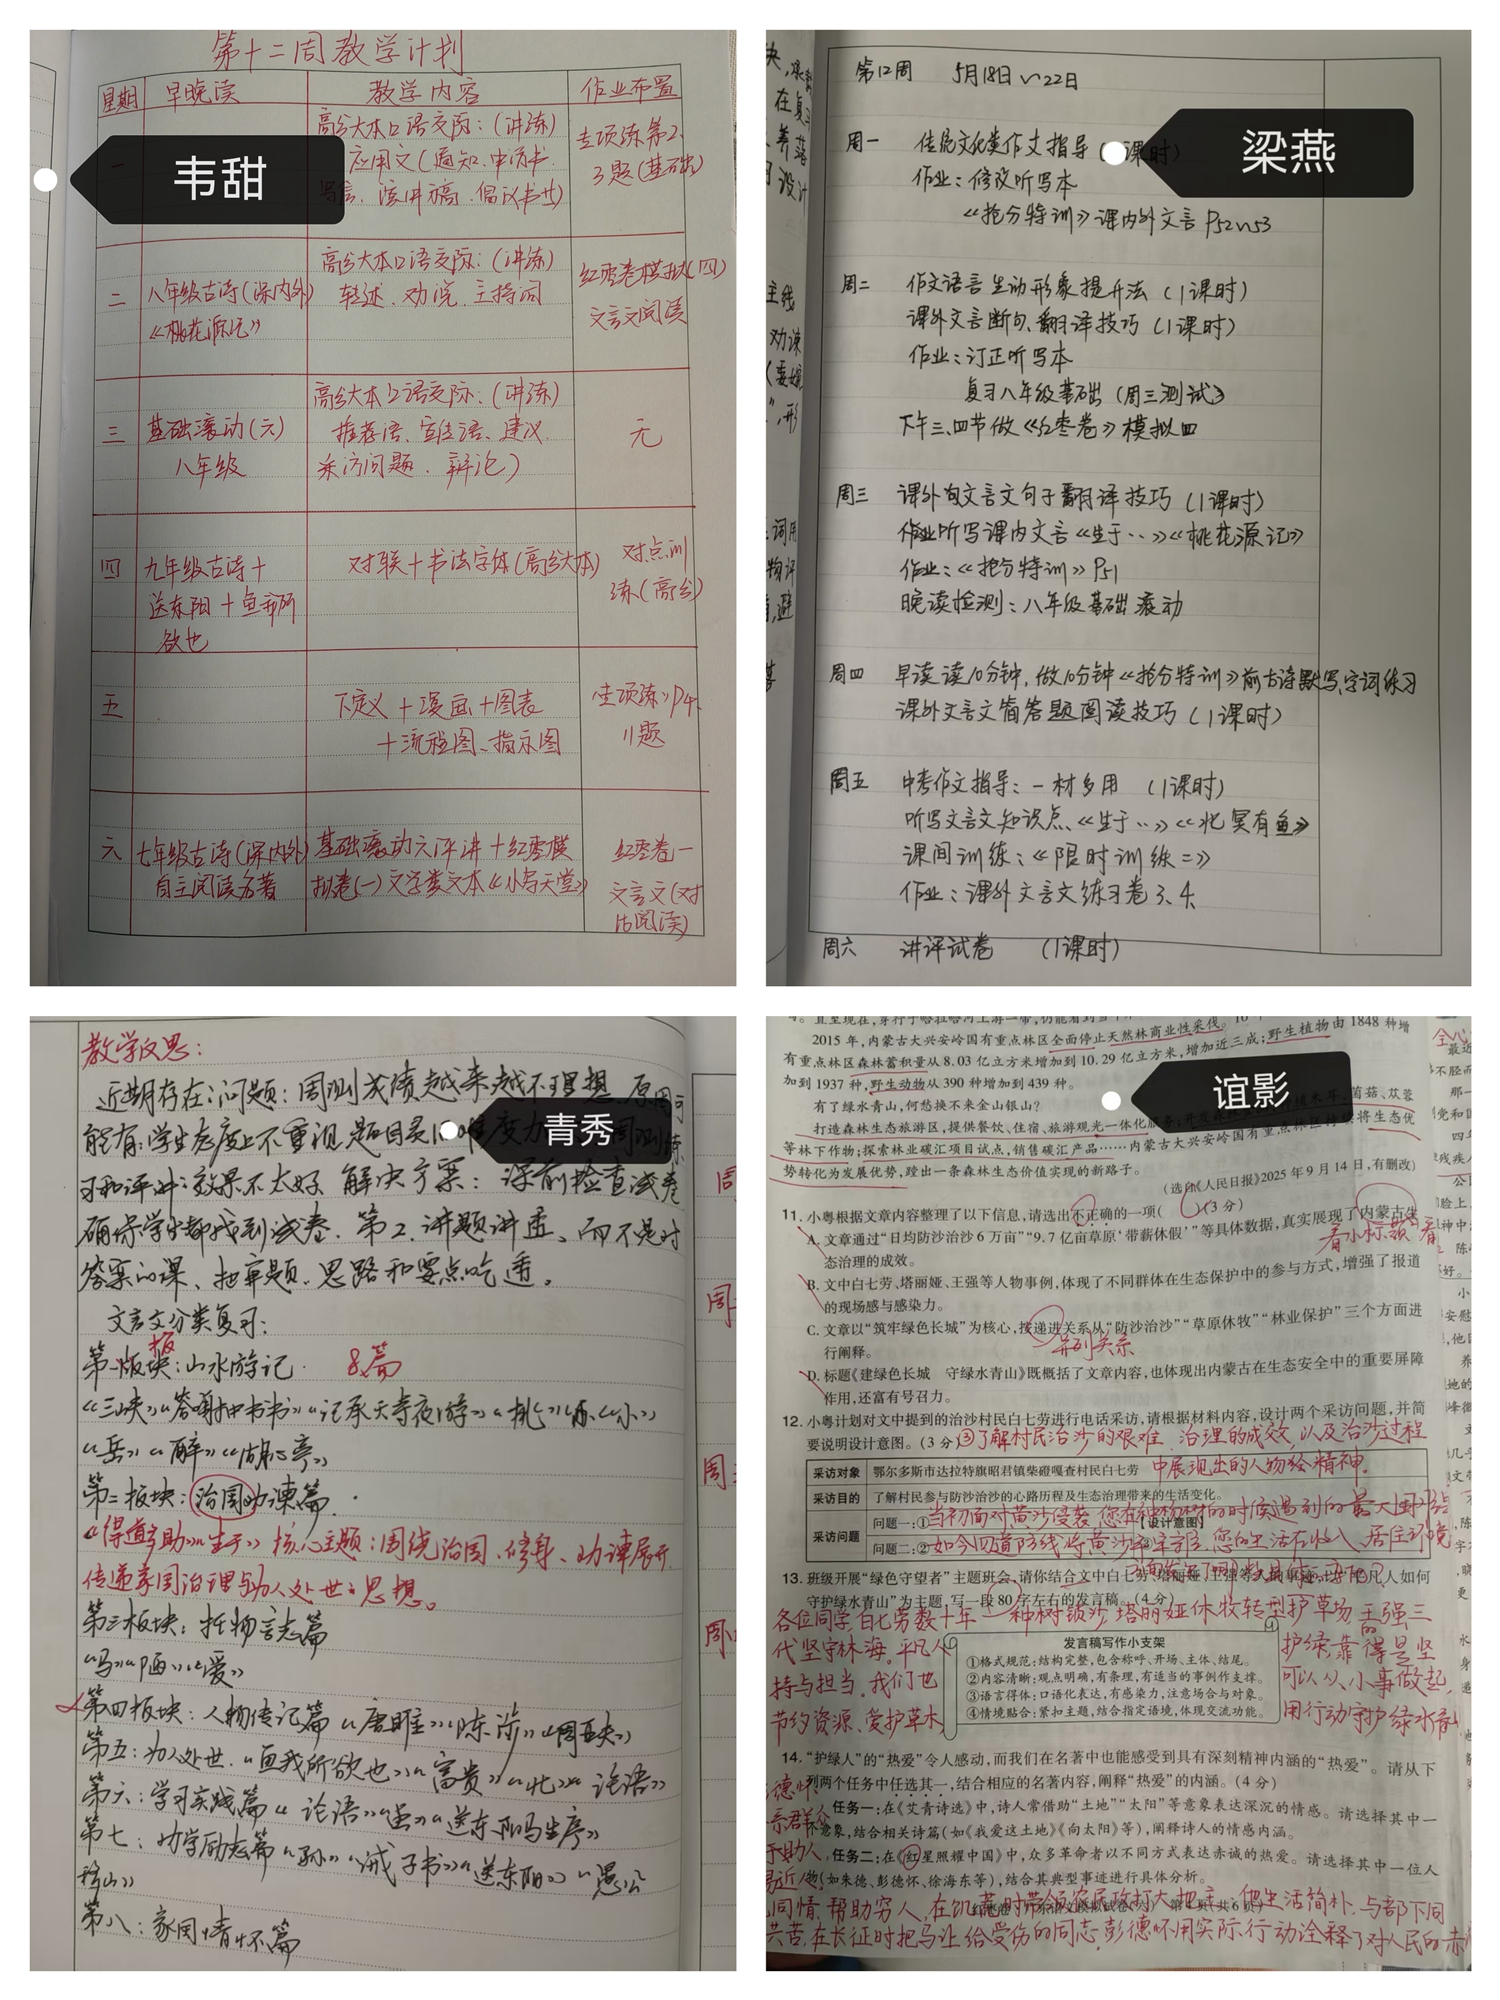 第十二周教学计划
星期 早晚读 教学内容 作业布置
韦甜
高分大本口语交际：(讲练)
应用文(通知、申请书、
写信、演讲稿、倡议书等)
专项练第2、
3题(基础)
二 八年级古诗(课内外)
《桃花源记》
高分大本口语交际：(讲练)
转述、劝说、主持词
红枣卷模拟(四)
文言文阅读
三 基础滚动(六)
八年级
高分大本口语交际：(讲练)
推荐语、宣传语、建议
采访问题、辩论)
无
四 九年级古诗+
送东阳+鱼我所
欲也
对联+书法字体(高分大本)
对点训
练(高分)
五
下定义+漫画+图表
+流程图、指示图
专项练》P4、
11题
六 七年级古诗(课内外)
自主阅读名著
基础滚动六评讲+红枣模
拟卷(一)文学类文本《小鸟天堂》
红枣卷一
文言文(对
比阅读)
第12周 5月18日~22日
梁燕
周一 传统文化类作文指导(课时)
作业：修改听写本
《抢分特训》课内外文言P52~53
周二 作文语言生动形象提升法(1课时)
课外文言断句、翻译技巧(1课时)
作业：订正听写本
复习八年级基础(周三测试)
下午三、四节做《红枣卷》模拟四
周三 课外文言文句子翻译技巧(1课时)
听写课内文言《生于··》《桃花源记》
作业：《抢分特训》P51
晚读检测：八年级基础滚动
周四 早读读10分钟，做10分钟《抢分特训》前古诗默写、字词练习
课外文言文简答题阅读技巧(1课时)
周五 中考作文指导：一材多用 (1课时)
听写文言文知识点、《生于··》《北冥有鱼》
课间训练：《限时训练二》
作业：课外文言文练习卷3、4
周六 讲评试卷 (1课时)
教学反思：
近期存在问题：周测成绩越来越不理想，原因可
能有：学生态度上不重视，题目
青秀
习和评讲效果不太好 解决方案：课前检查试卷
确保学生都找到试卷，第2、讲题讲透，而不是对
答案的课、把审题、思路和要点吃透。
文言文分类复习：
第一板块：山水游记 8篇
《三峡》《答谢中书书》《记承天寺夜游》《桃》《小》
《岳》《醉》《湖心亭》
第二板块：治国劝谏篇
《得道多助》《生于》核心主题：围绕治国、修身、劝谏展开
传递家国治理与为人处世思想。
第三板块：托物言志篇
《马》《陋》《爱》
第四板块：人物传记篇《唐雎》《陈涉》《周亚夫》
第五：为人处世《鱼我所欲也》《富贵》《北》《论语》
第六：学习实践篇《论语》《虽》《送东阳马生序》
第七：劝学励志篇《孙》《诫子书》《送东阳》《愚公
移山》
第八：家国情怀篇
2015年,内蒙古大兴安岭国有重点林区全面停止天然林商业性采伐。
有重点林区森林蓄积量从8.03亿立方米增加到10.29亿立方米,增加近三成;野生植物由1848种增
加到1937种,野生动物从390种增加到439种。
谊影
有了绿水青山,何愁换不来金山银山?
打造森林生态旅游区,提供餐饮、住宿、旅游观光一体化服务;
等林下作物;探索林业碳汇项目试点,销售碳汇产品……内蒙古大兴安岭国有重点林区持续将生态优
势转化为发展优势,蹚出一条森林生态价值实现的新路子。
(选自《人民日报》2025年9月14日,有删改)
11. 小粤根据文章内容整理了以下信息,请选出不正确的一项( )(3分)
A. 文章通过“日均防沙治沙6万亩”“9.7亿亩草原‘带薪休假’”等具体数据,真实展现了内蒙古生
态治理的成效。
看小标题看
B. 文中白七劳、塔丽娅、王强等人物事例,体现了不同群体在生态保护中的参与方式,增强了报道
的现场感与感染力。
C. 文章以“筑牢绿色长城”为核心,按递进关系从“防沙治沙”“草原休牧”“林业保护”三个方面进
行阐释。
并列关系
D. 标题《建绿色长城 守绿水青山》既概括了文章内容,也体现出内蒙古在生态安全中的重要屏障
作用,还富有号召力。
12. 小粤计划对文中提到的治沙村民白七劳进行电话采访,请根据材料内容,设计两个采访问题,并简
要说明设计意图。(3分)
③了解村民治沙的艰难、治理的成效,以及治沙过程
中展现出的人物精神。
采访对象 鄂尔多斯市达拉特旗昭君镇柴磴嘎查村民白七劳
采访目的 了解村民参与防沙治沙的心路历程及生态治理带来的生活变化。
采访问题 问题一:①当初面对黄沙侵袭,您在种树的时候遇到的最大困难
【设计意图】
问题二:②如今四道防线将黄沙牢牢 您的生活在收入、居住环境
13. 班级开展“绿色守望者”主题班会,请你结合文中白七劳、塔丽娅、王强等人
守护绿水青山”为主题,写一段80字左右的发言稿。(4分)
各位同学,白七劳数十年种树锁沙,塔丽娅休牧转型护草场,王强三
代坚守林海。平凡人的护绿,靠得是坚
持与担当。我们也可以从小事做起,
节约资源、爱护草木,用行动守护绿水青山
发言稿写作小支架
①格式规范:结构完整,包含称呼、开场、主体、结尾。
②内容清晰:观点明确,有条理,有适当的事例作支撑。
③语言得体:口语化表达,有感染力,注意场合与对象。
④情境贴合:紧扣主题,结合指定语境,体现交流功能。
14. “护绿人”的“热爱”令人感动,而我们在名著中也能感受到具有深刻精神内涵的“热爱”。请从下
列两个任务中任选其一,结合相应的名著内容,阐释“热爱”的内涵。(4分)
任务一:在《艾青诗选》中,诗人常借助“土地”“太阳”等意象表达深沉的情感。请选择其中一
种意象,结合相关诗篇(如《我爱这土地》《向太阳》等),阐释诗人的情感内涵。
任务二:在《红星照耀中国》中,众多革命者以不同方式表达赤诚的热爱。请选择其中一位人
物(如朱德、彭德怀、徐海东等),结合其典型事迹进行具体分析。
同情、帮助穷人,在饥荒时带领农民攻打大地主,他生活简朴,与部下同
共苦,在长征时把马让给受伤的同志,彭德怀用实际行动诠释了对人民的赤